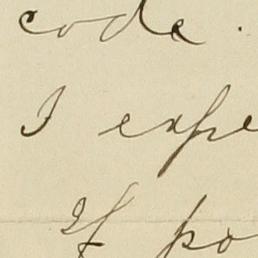 code.
I expe
If po